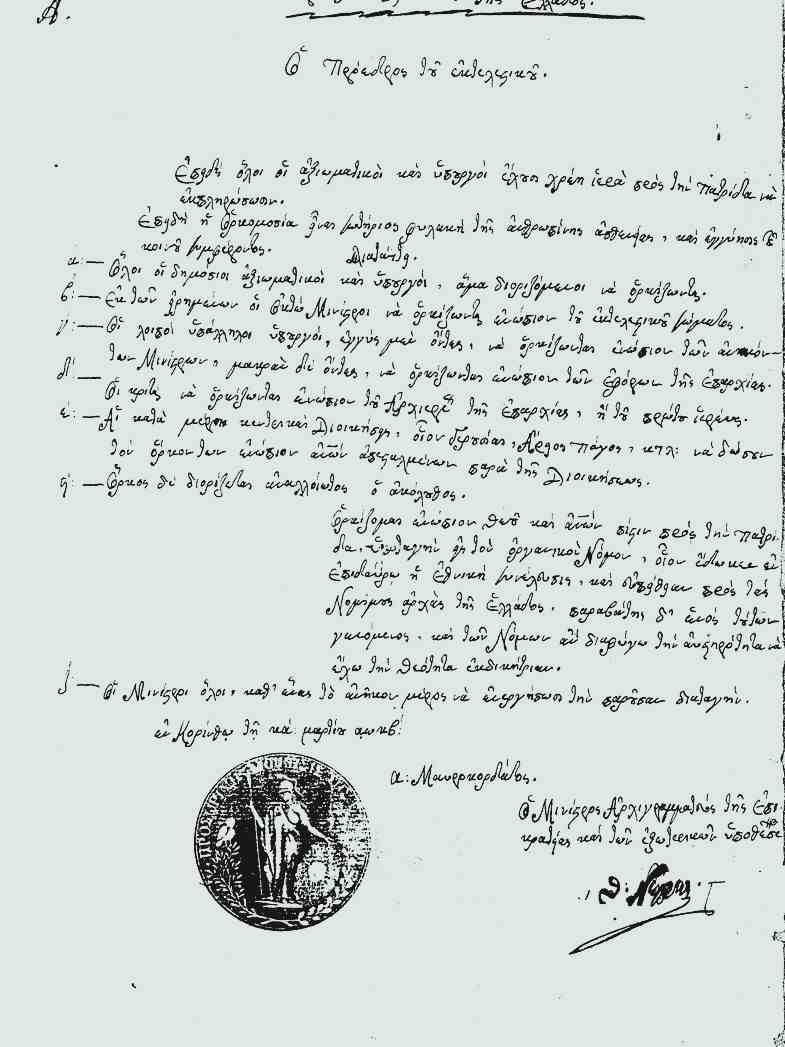 Α.
της Ελλάδος.
Ὁ Πρόεδρος τοῦ ἐκτελεστικοῦ.
Ἐπειδὴ ὅλοι οἱ ἀξιωματικοὶ καὶ ὑπουργοὶ ἔχουσι χρέη ἱερὰ πρὸς τὴν Πατρίδα νὰ
ἐκπληρώσωσιν.
Ἐπειδὴ ἡ ὁρκομοσία εἶναι σωτήριος φυλακὴ τῆς ἀνθρωπίνης ἀσθενείας, καὶ ἐγγύησις τοῦ
κοινοῦ συμφέροντος.
Διατάττει.
α: — Ὅλοι οἱ δημόσιοι ἀξιωματικοὶ καὶ ὑπουργοὶ, ἅμα διοριζόμενοι νὰ ὁρκίζωνται.
β: — Ἐκ τῶν εἰρημένων οἱ ὀκτὼ Μινίστροι νὰ ὁρκίζωνται ἐνώπιον τοῦ ἐκτελεστικοῦ σώματος.
γ: — Οἱ λοιποὶ ὑπάλληλοι ὑπουργοὶ, ἐγγὺς μὲν ὄντες, νὰ ὁρκίζωνται ἐνώπιον τῶν
των Μινίστρων, μακρὰν δὲ ὄντες, νὰ ὁρκίζωνται ἐνώπιον τῶν Ἐφόρων τῆς Ἐπαρχίας.
δ: — Οἱ κριταὶ νὰ ὁρκίζωνται ἐνώπιον τοῦ Ἀρχιερέως τῆς Ἐπαρχίας, ἢ τοῦ πρώτου ἱερέως.
ε: — Αἱ κατὰ μέρος κεντρικαὶ Διοικήσεις, οἷον Γερουσίαι, Ἄρειος Πάγος, κτλ: νὰ δώσουν
τὸν ὅρκον των ἐνώπιον ἀπεσταλμένων παρὰ τῆς Διοικήσεως.
ϛ: — Ὅρκος δὲ διορίζεται ἀναλλοίωτος ὁ ἀκόλουθος.
Ὁρκίζομαι ἐνώπιον Θεοῦ καὶ ἀνθρώπων πίστιν πρὸς τὴν πατρί-
δα, ὑποταγὴν εἰς τὸν ὀργανικὸν Νόμον, ὅστις ἔδωκεν ἐν
Ἐπιδαύρῳ ἡ Ἐθνικὴ Συνέλευσις, καὶ εὐπείθειαν πρὸς τὰς
Νομίμους ἀρχὰς τῆς Ἑλλάδος. παραβάτης δ' ἑνὸς τούτων
γενόμενος, καὶ τῶν Νόμων ἂν διαφύγω τὴν αὐστηρότητα νὰ
ἔχω τὴν Θεότητα ἐκδικήτριαν.
ζ: — Οἱ Μινίστροι ὅλοι, καθ' ἕνας τὸ ἀνῆκον μέρος νὰ ἐνεργήσωσι τὴν παροῦσαν διαταγήν.
ἐν Κορίνθῳ τῇ κα: μαρτίου αωκβ:
α: Μαυροκορδάτος.
Ὁ Μινίστρος Ἀρχιγραμματεὺς τῆς Ἐπι-
κρατείας καὶ τῶν ἐξωτερικῶν ὑποθέσε
Θ: Νέγρης